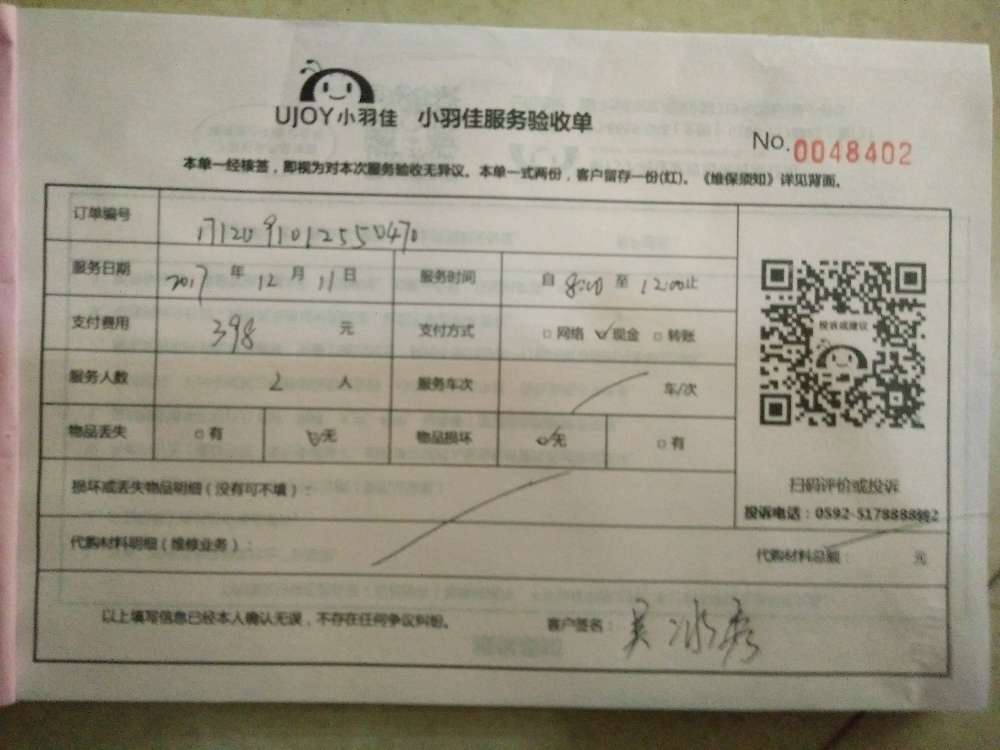 UJOY小羽佳 小羽佳服务验收单
No.0048402
本单一经核签，即视为对本次服务验收无异议。本单一式两份，客户留存一份(红)。《维保须知》详见背面。
订单编号 1712091012550470
服务日期 2017 年 12 月 11 日 服务时间 自 8:00 至 12:00止
支付费用 398 元 支付方式 □网络 ☑现金 □转账
服务人数 2 人 服务车次 车/次
物品丢失 □有 ☑无 物品损坏 ☑无 □有
投诉或建议
扫码评价或投诉
投诉电话：0592-5178888转2
损坏或丢失物品明细（没有可不填）：
代购材料明细（维修业务）： 代购材料总额： 元
以上填写信息已经本人确认无误，不存在任何争议纠纷。 客户签名：吴冰秀